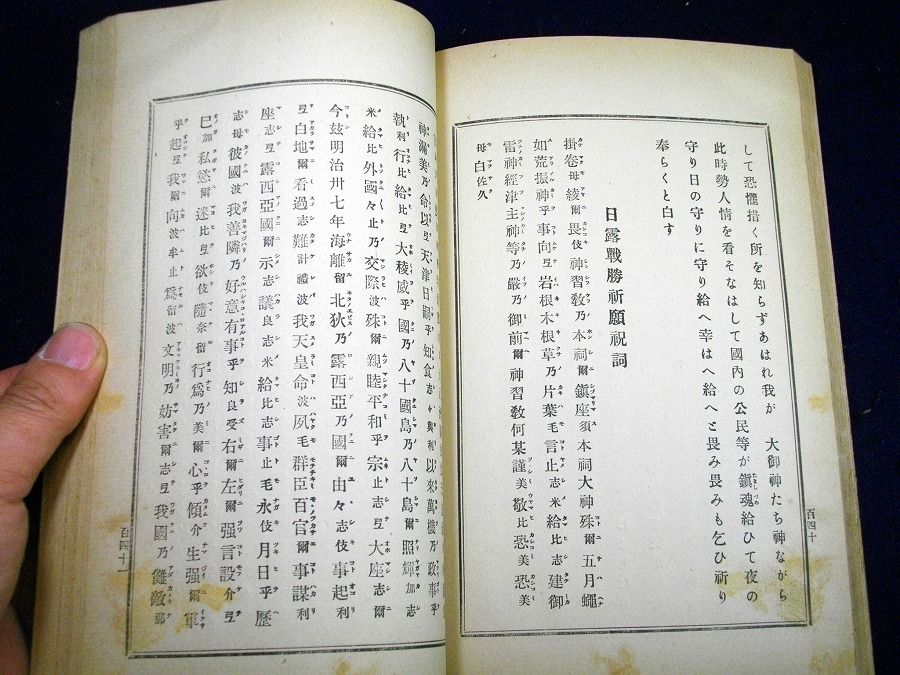 して恐懼措く所を知らずあはれ我が　大御神たち神ながら
此時勢人情を看そなはして國內の公民等が鎭魂給ひて夜の
守り日の守りに守り給へ幸はへ給へと畏み畏みも乞ひ祈り
奉らくと白す
日露戰勝祈願祝詞
掛卷母綾爾畏伎神習敎乃本祠爾鎭座須本祠大神殊爾五月蠅
如荒振神乎事向弖岩根木根草乃片葉毛言止志米給比志建御
雷神經津主神等乃嚴乃御前爾神習敎何某謹美敬比恐美恐美
母白佐久
百四十
神漏美乃命以弖天津日嗣乎知食志々與利以來萬機乃政事乎
執利行比給比弖大稜威乎國乃八十國島乃八十島爾照輝加志
米給比外國々止乃交際波殊爾親睦平和乎宗止志弖大座志爾
今玆明治卅七年海離留北狄乃露西亞乃國爾由々志伎事起利
弖白地爾看過志難計禮波我天皇命波夙毛群臣百官爾事謀利
座志弖露西亞國爾示志議良志米給比志事止毛永伎月日乎歷
志母彼國波我善隣乃好意有事乎知良受右爾左爾强言設介弖
巳加私慾爾迷比弖欲伎隨奈留行爲乃美爾心乎傾介生强爾軍
乎起弖我爾向波牟止爲留波文明乃妨害爾志弖我國乃讎敵那
百四十一